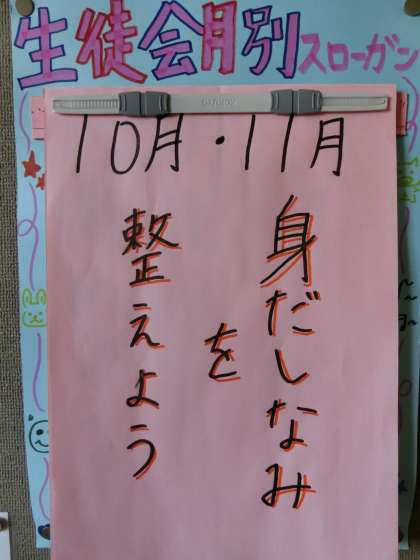 生徒会月別スローガン
10月・11月
身だしなみ
を
整えよう